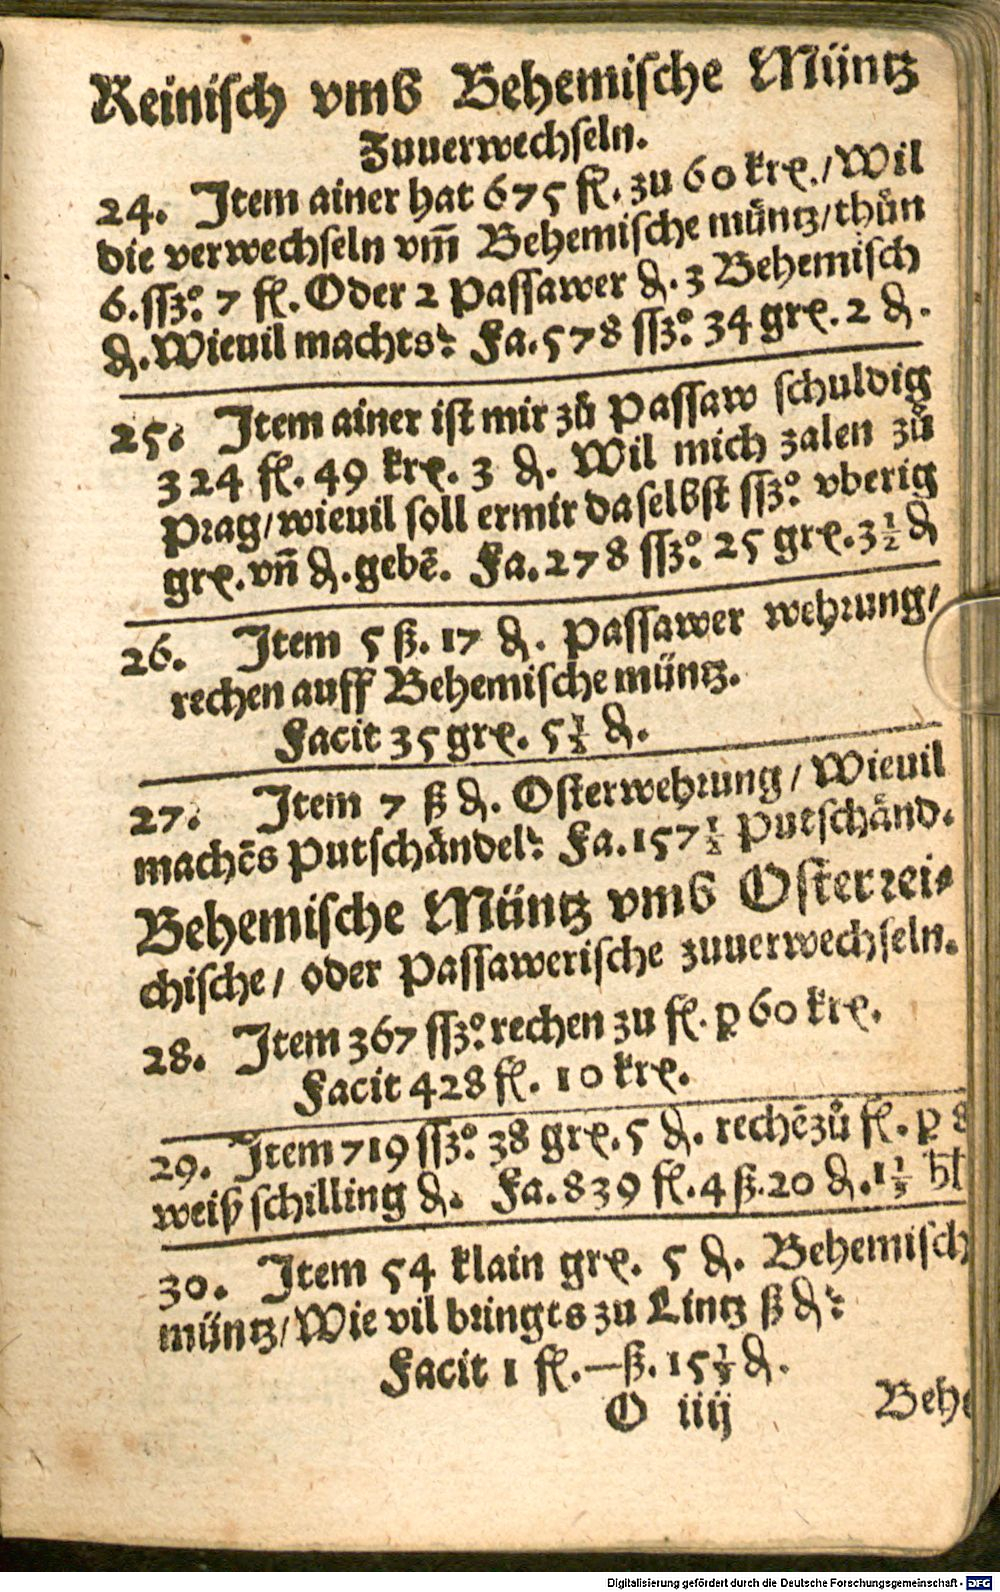 Reinisch vmb Behemische Müntz
Zuuerwechseln.
24. Item ainer hat 675 fl. zu 60 krx./Wil
die verwechseln vm̃ Behemische müntz/thůn
6. ſſz° 7 fl. Oder 2 Passawer ₰. 3 Behemisch
₰. Wieuil machts: Fa. 578 ſſz° 34 grx. 2 ₰.
25. Item ainer ist mir zů Passaw schuldig
324 fl. 49 krx. 3 ₰. Wil mich zalen zů
Prag/wieuil soll ermir daselbst ſſz° vberig
grx. vñ ₰. gebē. Fa. 278 ſſz° 25 grx. 3 1/2 ₰
26. Item 5 ß. 17 ₰. Passawer wehrung/
rechen auff Behemische müntz.
Facit 35 grx. 5 1/2 ₰.
27. Item 7 ß ₰. Osterwehrung/Wieuil
machēs Putschändel: Fa. 157 1/2 Putschänd.
Behemische Müntz vmb Osterrei-
chische/ oder Passawerische zuuerwechseln.
28. Item 367 ſſz° rechen zu fl. ꝑ 60 krx.
Facit 428 fl. 10 krx.
29. Item 719 ſſz° 38 grx. 5 ₰. rechēzů fl. ꝑ 8
weiß schilling ₰. Fa. 839 fl. 4 ß. 20 ₰. 1 1/3 hl
30. Item 54 klain grx. 5 ₰. Behemisch
müntz/Wie vil bringts zu Lintz ß ₰:
Facit 1 fl. — ß. 15 1/3 ₰.
O iiij
Behe
Digitalisierung gefördert durch die Deutsche Forschungsgemeinschaft - DFG